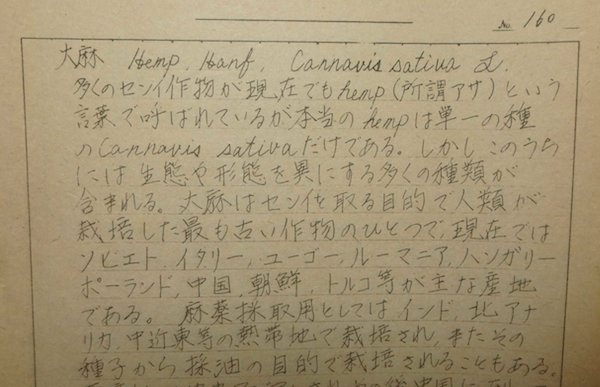 No. 160
大麻 Hemp, Hanf, Cannavis sativa L.
多くのセンイ作物が現在でもhemp(所謂アサ)という
言葉で呼ばれているが本当のhempは単一の種
のCannavis sativaだけである。しかしこのうち
には生態や形態を異にする多くの種類が
含まれる。大麻はセンイを取る目的で人類が
栽培した最も古い作物のひとつで、現在では
ソビエト、イタリー、ユーゴー、ルーマニア、ハンガリー
ポーランド、中国、朝鮮、トルコ等が主な産地
である。麻薬採取用としてはインド、北アナ
リカ、中近東等の熱帯地で栽培され、またその
種子から採油の目的で栽培されることもある。